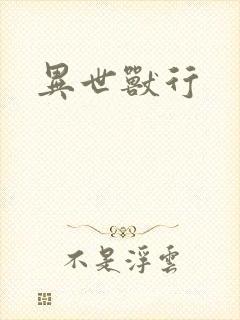 異世獸行
不是浮雲